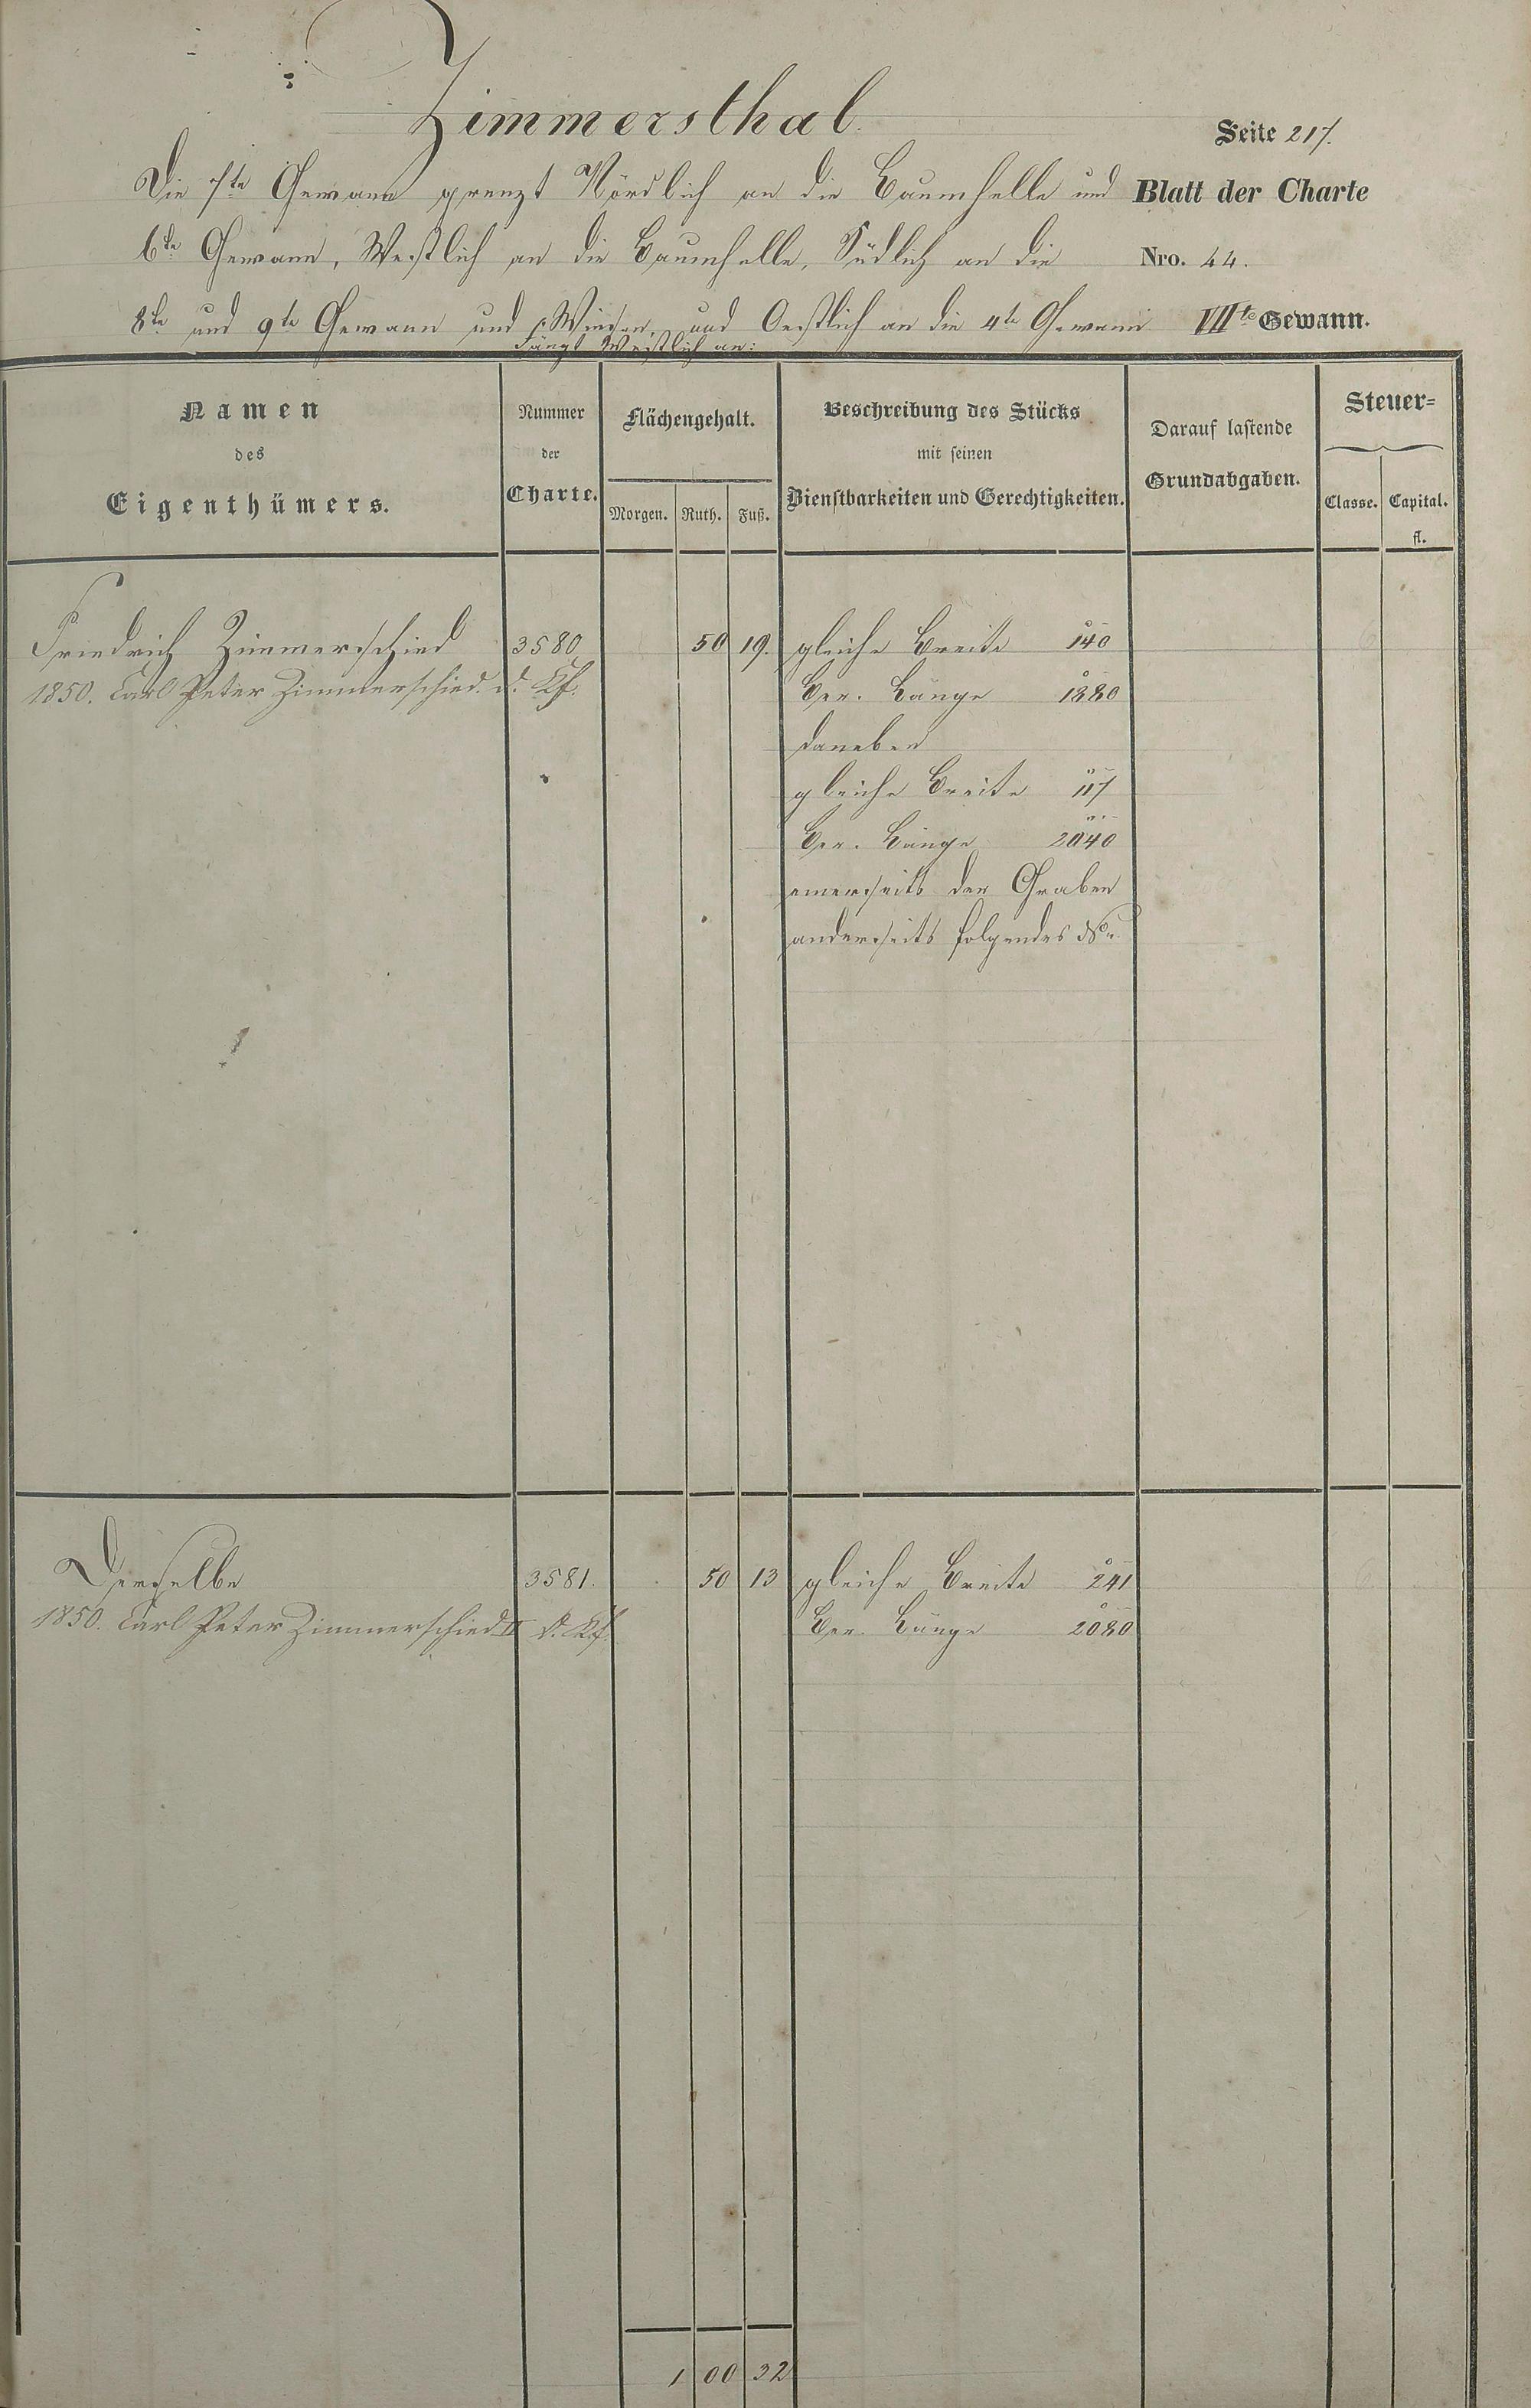 Zimmersthal.
Seite 217.
Die 7te Gewann grenzt Nördlich an die Baumhelle und
Blatt der Charte
6te Gewann, Westlich an die Baumhelle, Südlich an die
Nro. 44.
8te und 9te Gewann und Wiesen, und Oestlich an die 4te Gewann
VIIte Gewann.
Fängt Westlich an:
Namen
des
Eigenthümers.
Nummer
der
Charte.
Flächengehalt.
Morgen. Ruth. Fuß.
Beschreibung des Stücks
mit seinen
Dienstbarkeiten und Gerechtigkeiten.
Darauf lastende
Grundabgaben.
Steuer-
Classe. Capital.
fl.
Friedrich Zimmerschied 3580 50 19. gleiche Breite 140
1850. Carl Peter Zimmerschied d. Kf. Ber. Länge 1880
daneben
gleiche Breite 117
Ber. Länge 2040
einerseits der Graben
anderseits folgendes No.
Derselbe 3581. 50 13 gleiche Breite 241
1850. Carl Peter Zimmerschied II d. Kf. Ber. Länge 2080
1 00 32